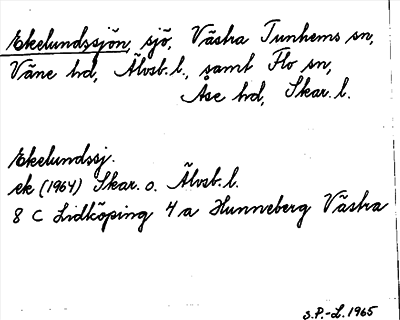 Ekelundssjön, sjö, Västra Tunhems sn,
Väne hd, Älvsb. l., samt Flo sn,
Åse hd, Skar. l.
Ekelundssj.
ek (1964) Skar. o. Älvsb. l.
8 C Lidköping 4 a Hunneberg Västra
S.P.-L. 1965